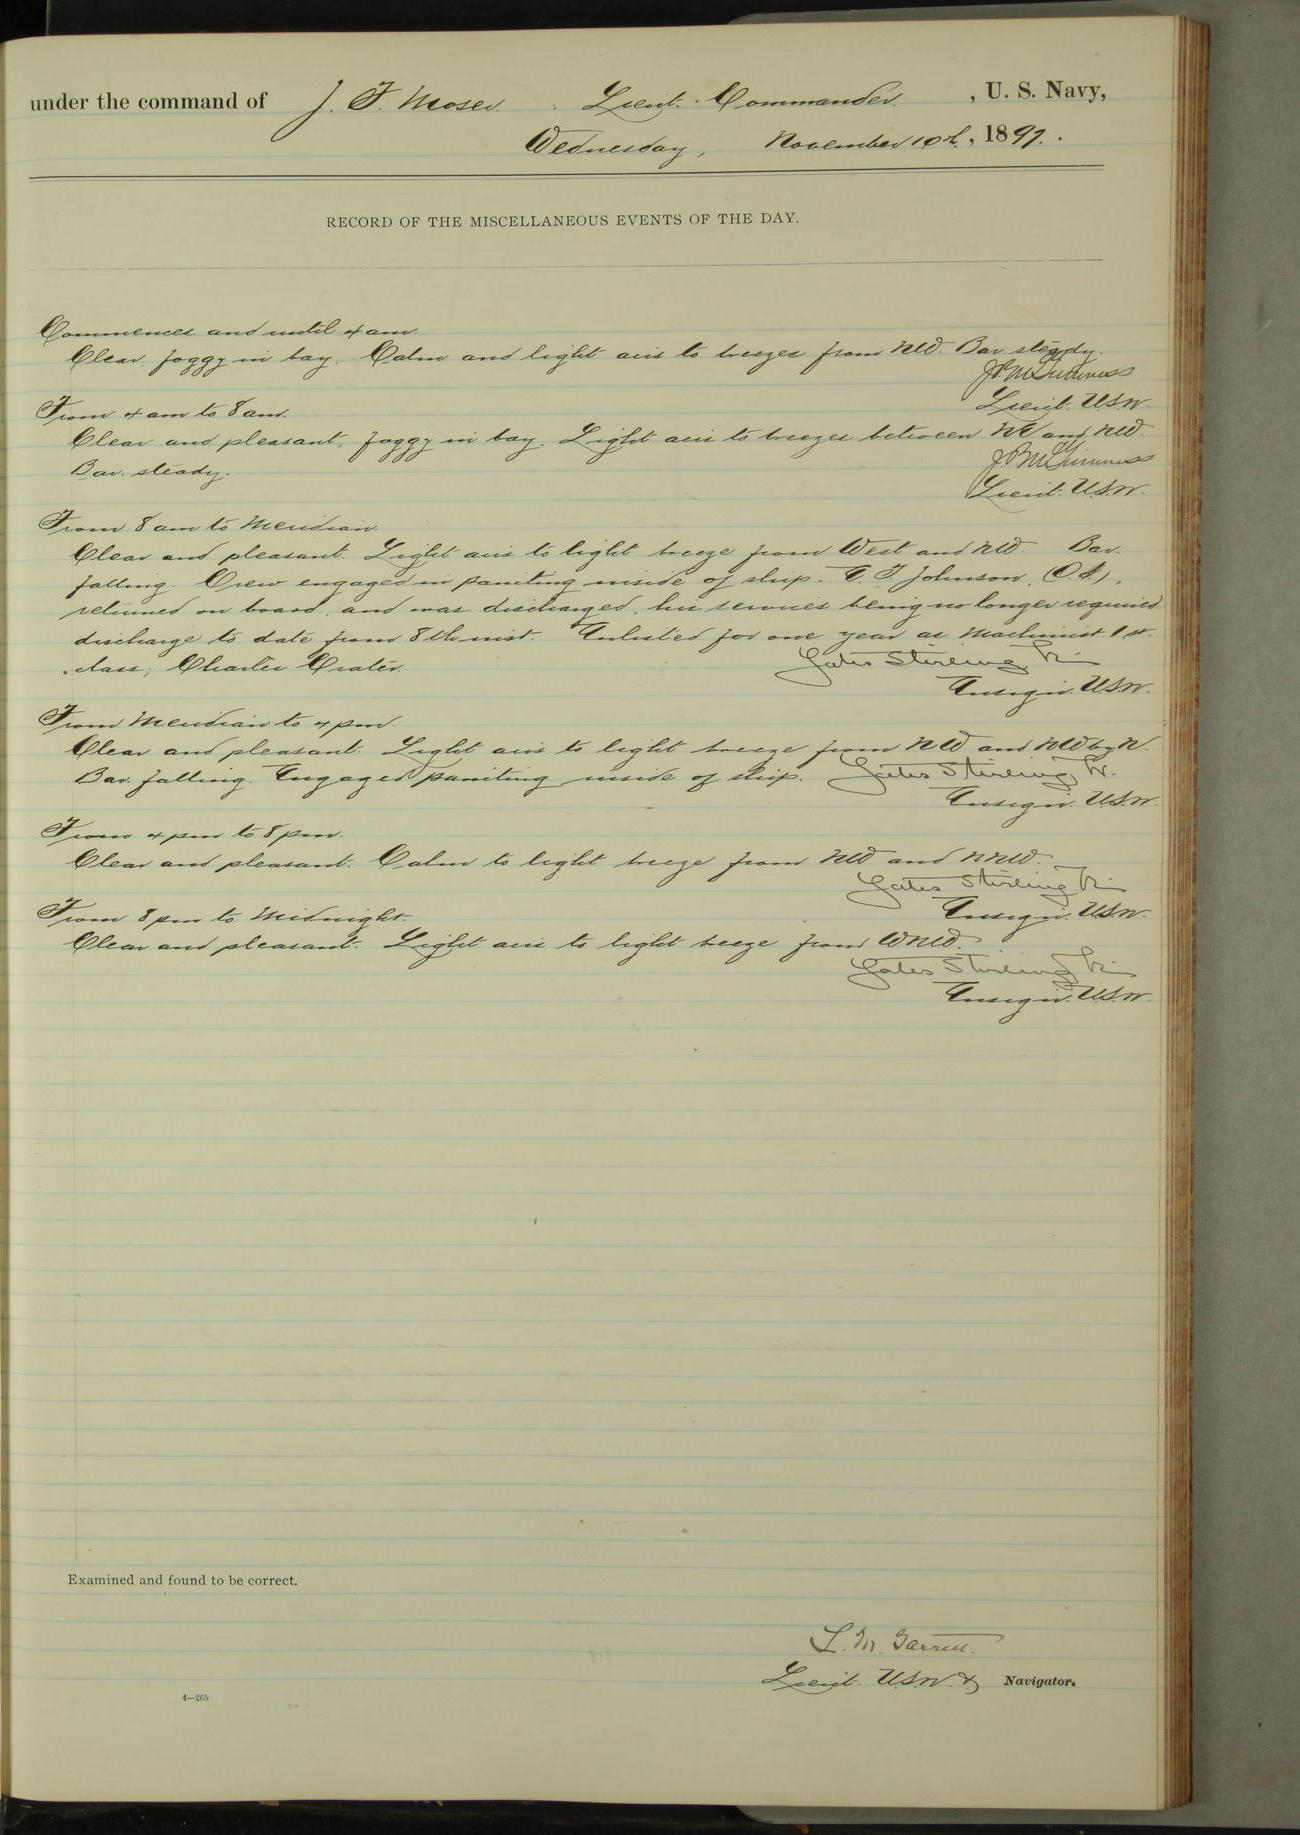 under the command of J. F. Moser, Lieut. Commander, U. S. Navy,
Wednesday, November 10th, 1897.
RECORD OF THE MISCELLANEOUS EVENTS OF THE DAY.
Commences and until 4 am.
Clear, foggy in bay. Calm and light airs to breezes from NW. Bar. steady.
Lieut. U.S.N.
From 4 am to 8 am.
Clear and pleasant, foggy in bay. Light airs to breezes between and NW.
Bar. steady.
Lieut. U.S.N.
From 8 am to Meridian.
Clear and pleasant. Light airs to light breeze from West and NW. Bar.
falling. Crew engaged in painting inside of ship. Johnson,
returned on board, and was discharged, his services being no longer required
discharge to date from 8th inst. Enlisted for one year as Machinist 1st.
class, Charles Crater.
Yates Stirling Jr.
Ensign. U.S.N.
From Meridian to 4 pm
Clear and pleasant. Light airs to light breeze from NW and NW by N.
Bar. falling. Engaged painting inside of ship.
Yates Stirling Jr.
Ensign. U.S.N.
From 4 pm to 8 pm.
Clear and pleasant. Calm to light breeze from NW and NNW.
Yates Stirling Jr.
Ensign. U.S.N.
From 8 pm to Midnight.
Clear and pleasant. Light airs to light breeze from WNW.
Yates Stirling Jr.
Ensign. U.S.N.
Examined and found to be correct.
L. M. Garrett.
Lieut. U.S.N. & Navigator.
4—265